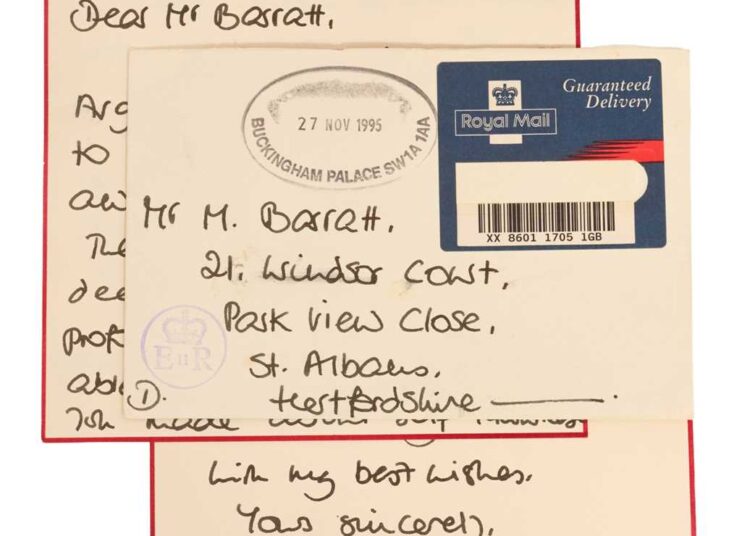 Dear Mr Barratt,
Arg
to
aw
The
dee
prof
abl
Job made
27 NOV 1995
BUCKINGHAM PALACE SW1A 1AA
Royal Mail
Guaranteed
Delivery
XX 8601 1705 1GB
Mr M. Barratt,
21. Windsor Court,
Park View Close,
St. Albans,
Hertfordshire
E II R
D.
With my best wishes,
Yours sincerely,